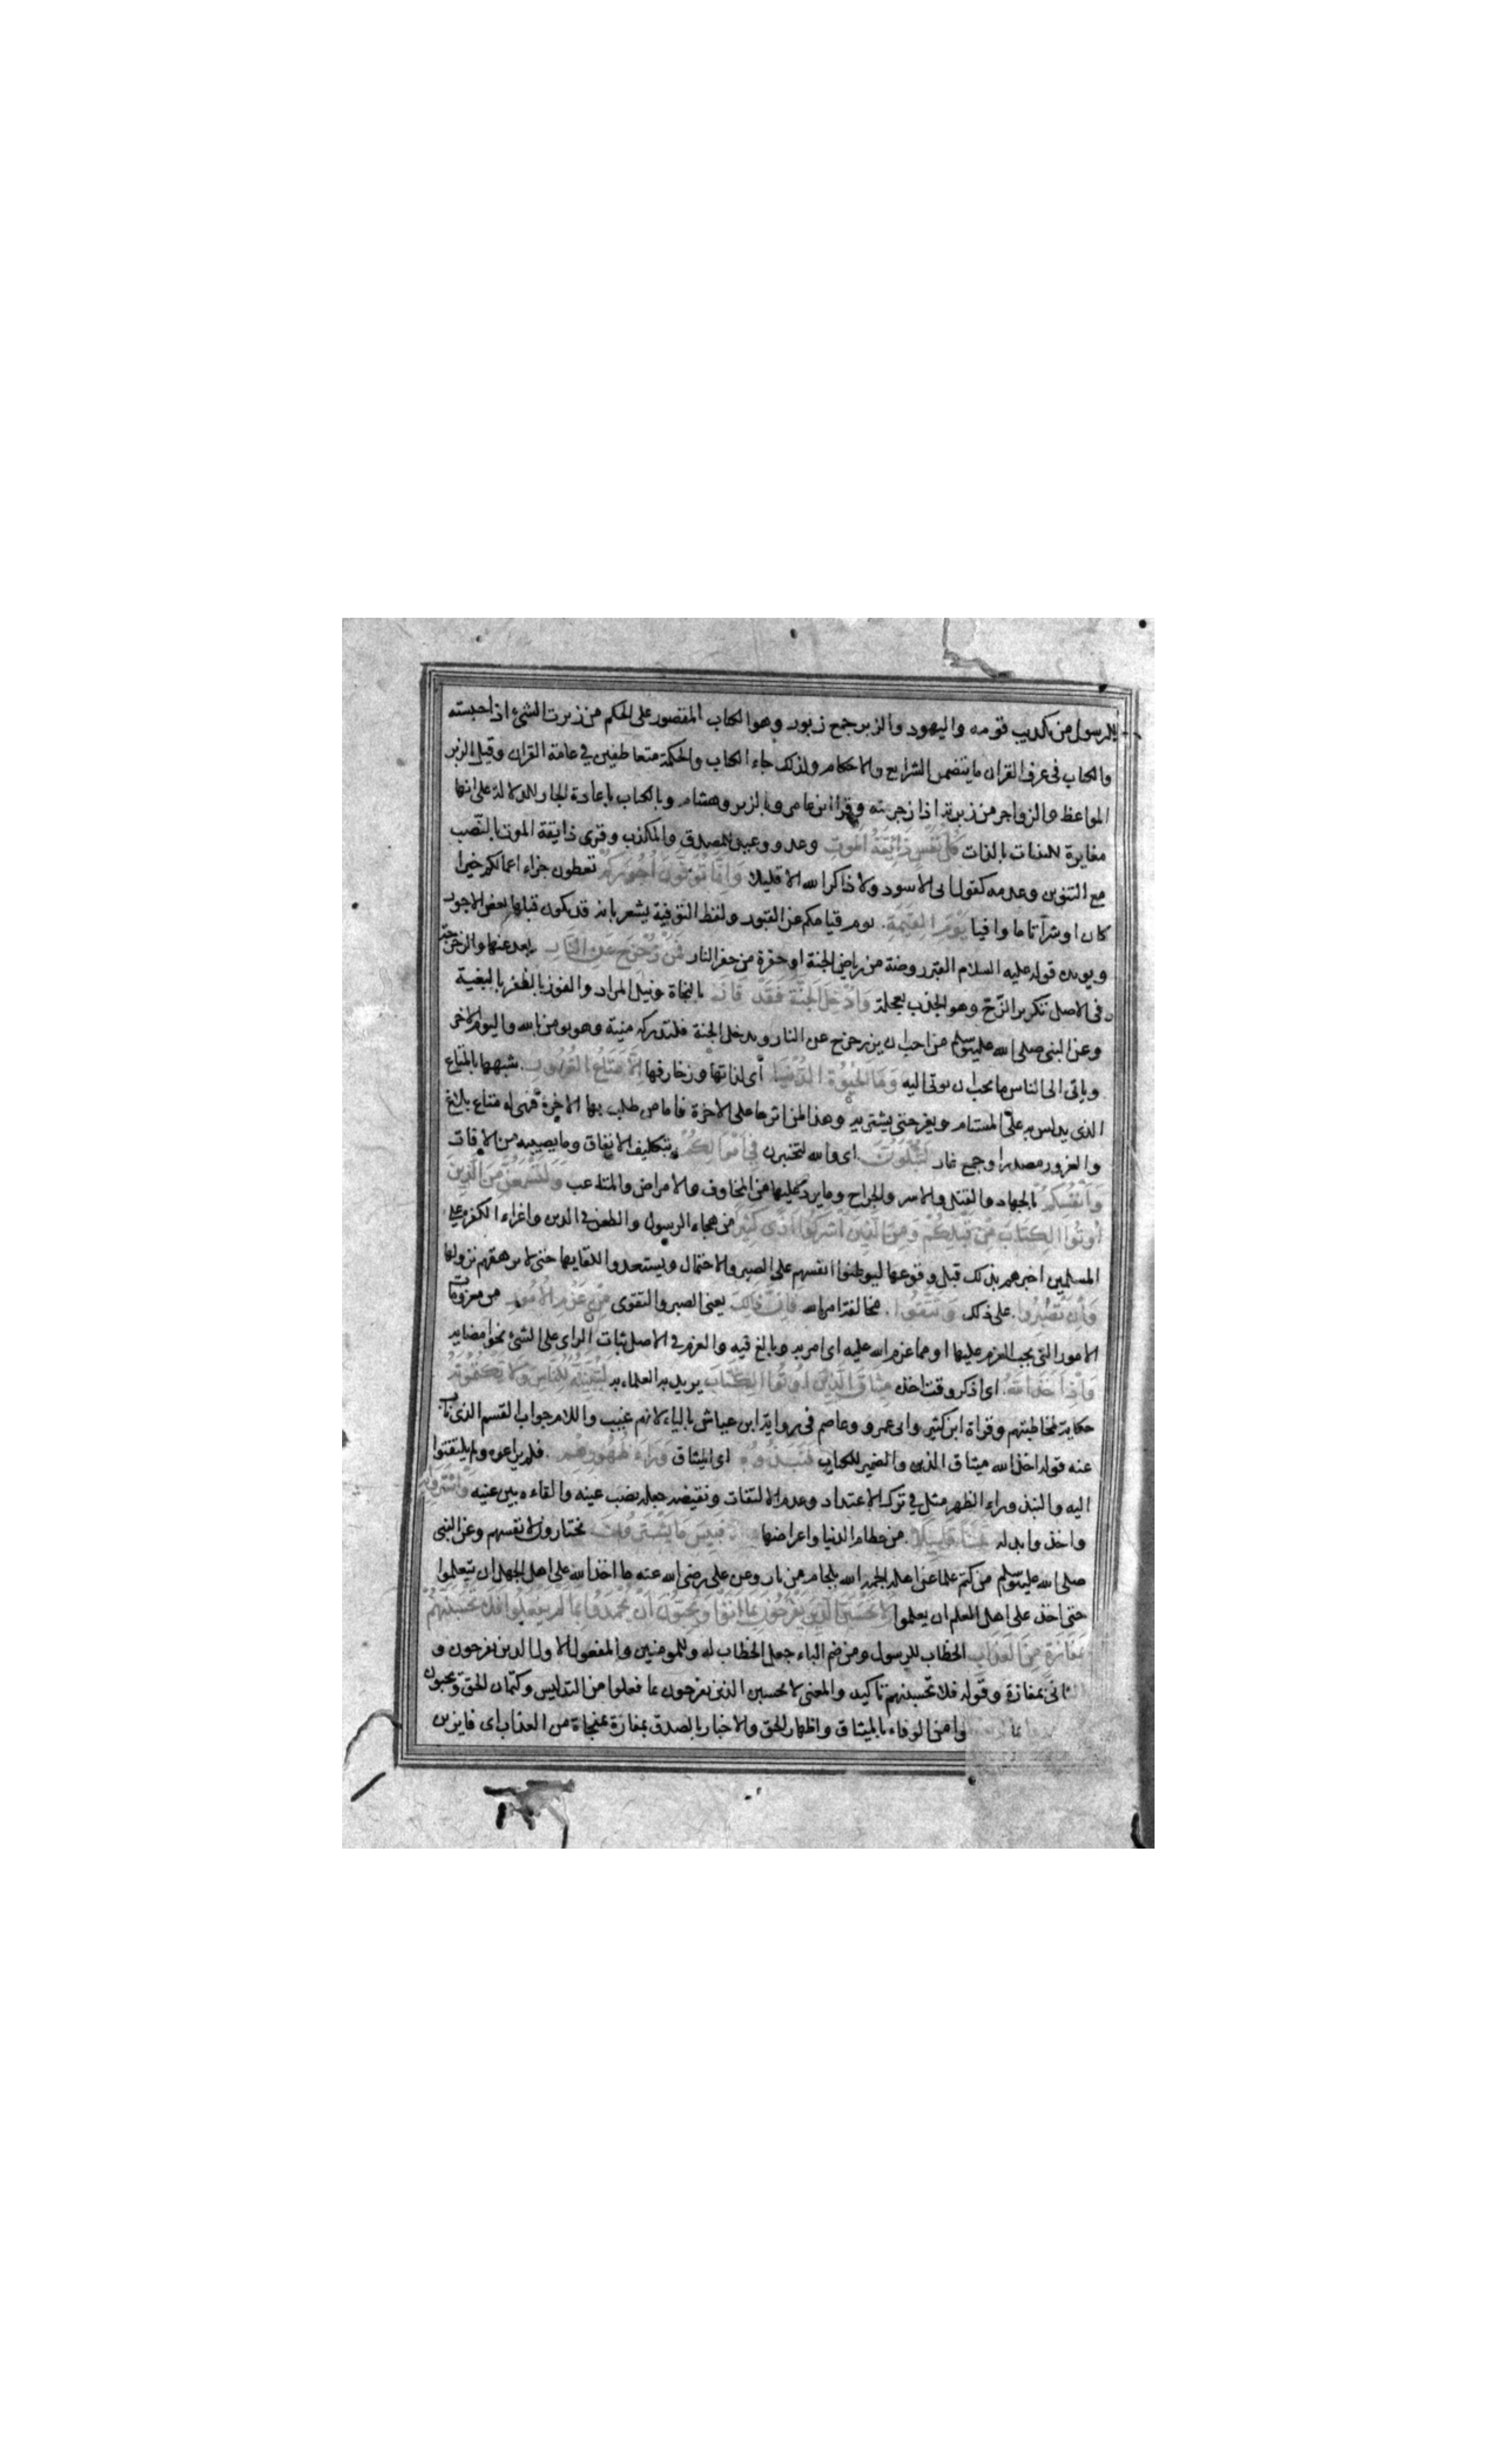 للرسول من تكذيب قومه واليهود والزبر جمع زبور وهو الكتاب المقصور على الحكم من زبرت الشئ اذا حبسته
والكتاب فى عرف القران ما يتضمن الشرايع والاحكام ولذلك جاء الكتاب والحكمة متعاطفين فى عامة القران وقيل الزبر
المواعظ والزواجر من زبرته اذا زجرته وقرا ابن عامر وبالزبر وهشام وبالكتاب باعادة الجار للدلالة على انها
مغايرة للبينات بالذات كُلُّ نَفْسٍ ذَائِقَةُ الْمَوْتِ وعد ووعيد للمصدق والمكذب وقرئ ذايقة الموت بالنصب
مع التنوين وعدمه كقول ابى الاسود ولا ذاكر الله الا قليلا وَاِنَّمَا تُوَفَّوْنَ اُجُورَكُمْ تعطون جزاء اعمالكم خيرا
كان او شرا تاما وافيا يَوْمَ الْقِيمَةِ يوم قيامكم عن القبور ولفظ التوفية يشعر بانه قد يكون قبلها بعض الاجور
ويويده قوله عليه السلام القبر روضة من رياض الجنة او حفرة من حفر النار فَمَنْ زُحْزِحَ عَنِ النَّارِ بعد عنها والزحزحة
فى الاصل تكرير الزح وهو الجذب بعجلة وَاُدْخِلَ الْجَنَّةَ فَقَدْ فَازَ بالنجاة ونيل المراد والفوز الظفر بالبغية
وعن النبى صلى الله عليه وسلم من احب ان يزحزح عن النار ويدخل الجنة فلتدركه منية وهو يومن بالله واليوم الاخر
وياتى الى الناس ما يحب ان يوتى اليه وَمَا الْحَيٰوةُ الدُّنْيَا اى لذاتها وزخارفها اِلَّا مَتَاعُ الْغُرُورِ شبهها بالمتاع
الذى يدلس به على المستام ويغر حتى يشتريه وهذا لمن اثرها على الاخرة فاما من طلب بها الاخرة فهى له متاع بلاغ
والغرور مصدر او جمع غار لَتُبْلَوُنَّ اى والله لتختبرن فِى اَمْوَالِكُمْ بتكليف الانفاق وما يصيبه من الافات
وَاَنْفُسِكُمْ بالجهاد والقتل والاسر والجراح وما يرد عليها من المخاوف والامراض والمتاعب وَلَتَسْمَعُنَّ مِنَ الَّذِينَ
اُوتُوا الْكِتَابَ مِنْ قَبْلِكُمْ وَمِنَ الَّذِينَ اَشْرَكُوا اَذًى كَثِيرًا من هجاء الرسول والطعن فى الدين واغراء الكفرة على
المسلمين اخبرهم بذلك قبل وقوعها ليوطنوا انفسهم على الصبر والاحتمال ويستعدوا للقايها حتى لا يرهقهم نزولها
وَاِنْ تَصْبِرُوا على ذلك وَتَتَّقُوا مخالفة امر الله فَاِنَّ ذَلِكَ يعنى الصبر والتقوى مِنْ عَزْمِ الْاُمُورِ من معزومات
الامور التى يجب العزم عليها او مما عزم الله عليه اى امر به وبالغ فيه والعزم فى الاصل ثبات الراى على الشئ نحو امضايه
وَاِذْ اَخَذَ اللهُ اى اذكر وقت اخذه مِيثَاقَ الَّذِينَ اُوتُوا الْكِتَابَ يريد به العلماء به لَتُبَيِّنُنَّهُ لِلنَّاسِ وَلَا تَكْتُمُونَهُ
حكاية لمخاطبتهم وقراة ابن كثير وابى عمرو وعاصم فى رواية ابن عياش بالياء لانهم غيب واللام جواب القسم الذى ناب
عنه قوله اخذ الله ميثاق الذين والضمير للكتاب فَنَبَذُوهُ اى الميثاق وَرَاءَ ظُهُورِهِمْ فلم يراعوه ولم يلتفتوا
اليه والنبذ وراء الظهر مثل فى ترك الاعتداد وعدم الالتفات ونقيضه جعله نصب عينه والقاءه بين عينيه وَاشْتَرَوْا بِهِ
واخذوا بدله ثَمَنًا قَلِيلًا من حطام الدنيا واعراضها فَبِئْسَ مَا يَشْتَرُونَ يختارون لانفسهم وعن النبى
صلى الله عليه وسلم من كتم علما عن اهله الجمه الله بلجام من نار وعن على رضى الله عنه ما اخذ الله على اهل الجهل ان يتعلموا
حتى اخذ على اهل العلم ان يعلموا لَا تَحْسَبَنَّ الَّذِينَ يَفْرَحُونَ بِمَا اَتَوْا وَيُحِبُّونَ اَنْ يُحْمَدُوا بِمَا لَمْ يَفْعَلُوا فَلَا تَحْسَبَنَّهُمْ
بِمَفَازَةٍ مِنَ الْعَذَابِ الخطاب للرسول ومن ضم الباء جعل الخطاب له وللمومنين والمفعول الاول الذين يفرحون و
الثانى بمفازة وقوله فلا تحسبنهم تاكيد والمعنى لا تحسبن الذين يفرحون بما فعلوا من التدليس وكتمان الحق ويحبون
بما وا من الوفاء بالميثاق واظهار الحق والاخبار بالصدق بمفازة بمنجاة من العذاب اى فايزين